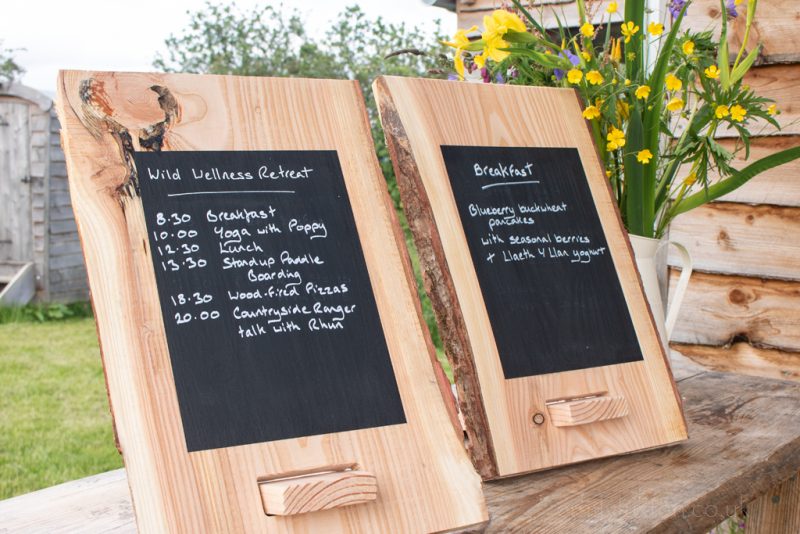 Wild Wellness Retreat
8.30 Breakfast
10.00 Yoga with Poppy
12.30 Lunch
13.30 Standup Paddle
Boarding
18.30 Wood-Fired Pizzas
20.00 Countryside Ranger
talk with Rhun
Breakfast
Blueberry buckwheat
pancakes
with seasonal berries
+ Llaeth Y Llan yoghurt